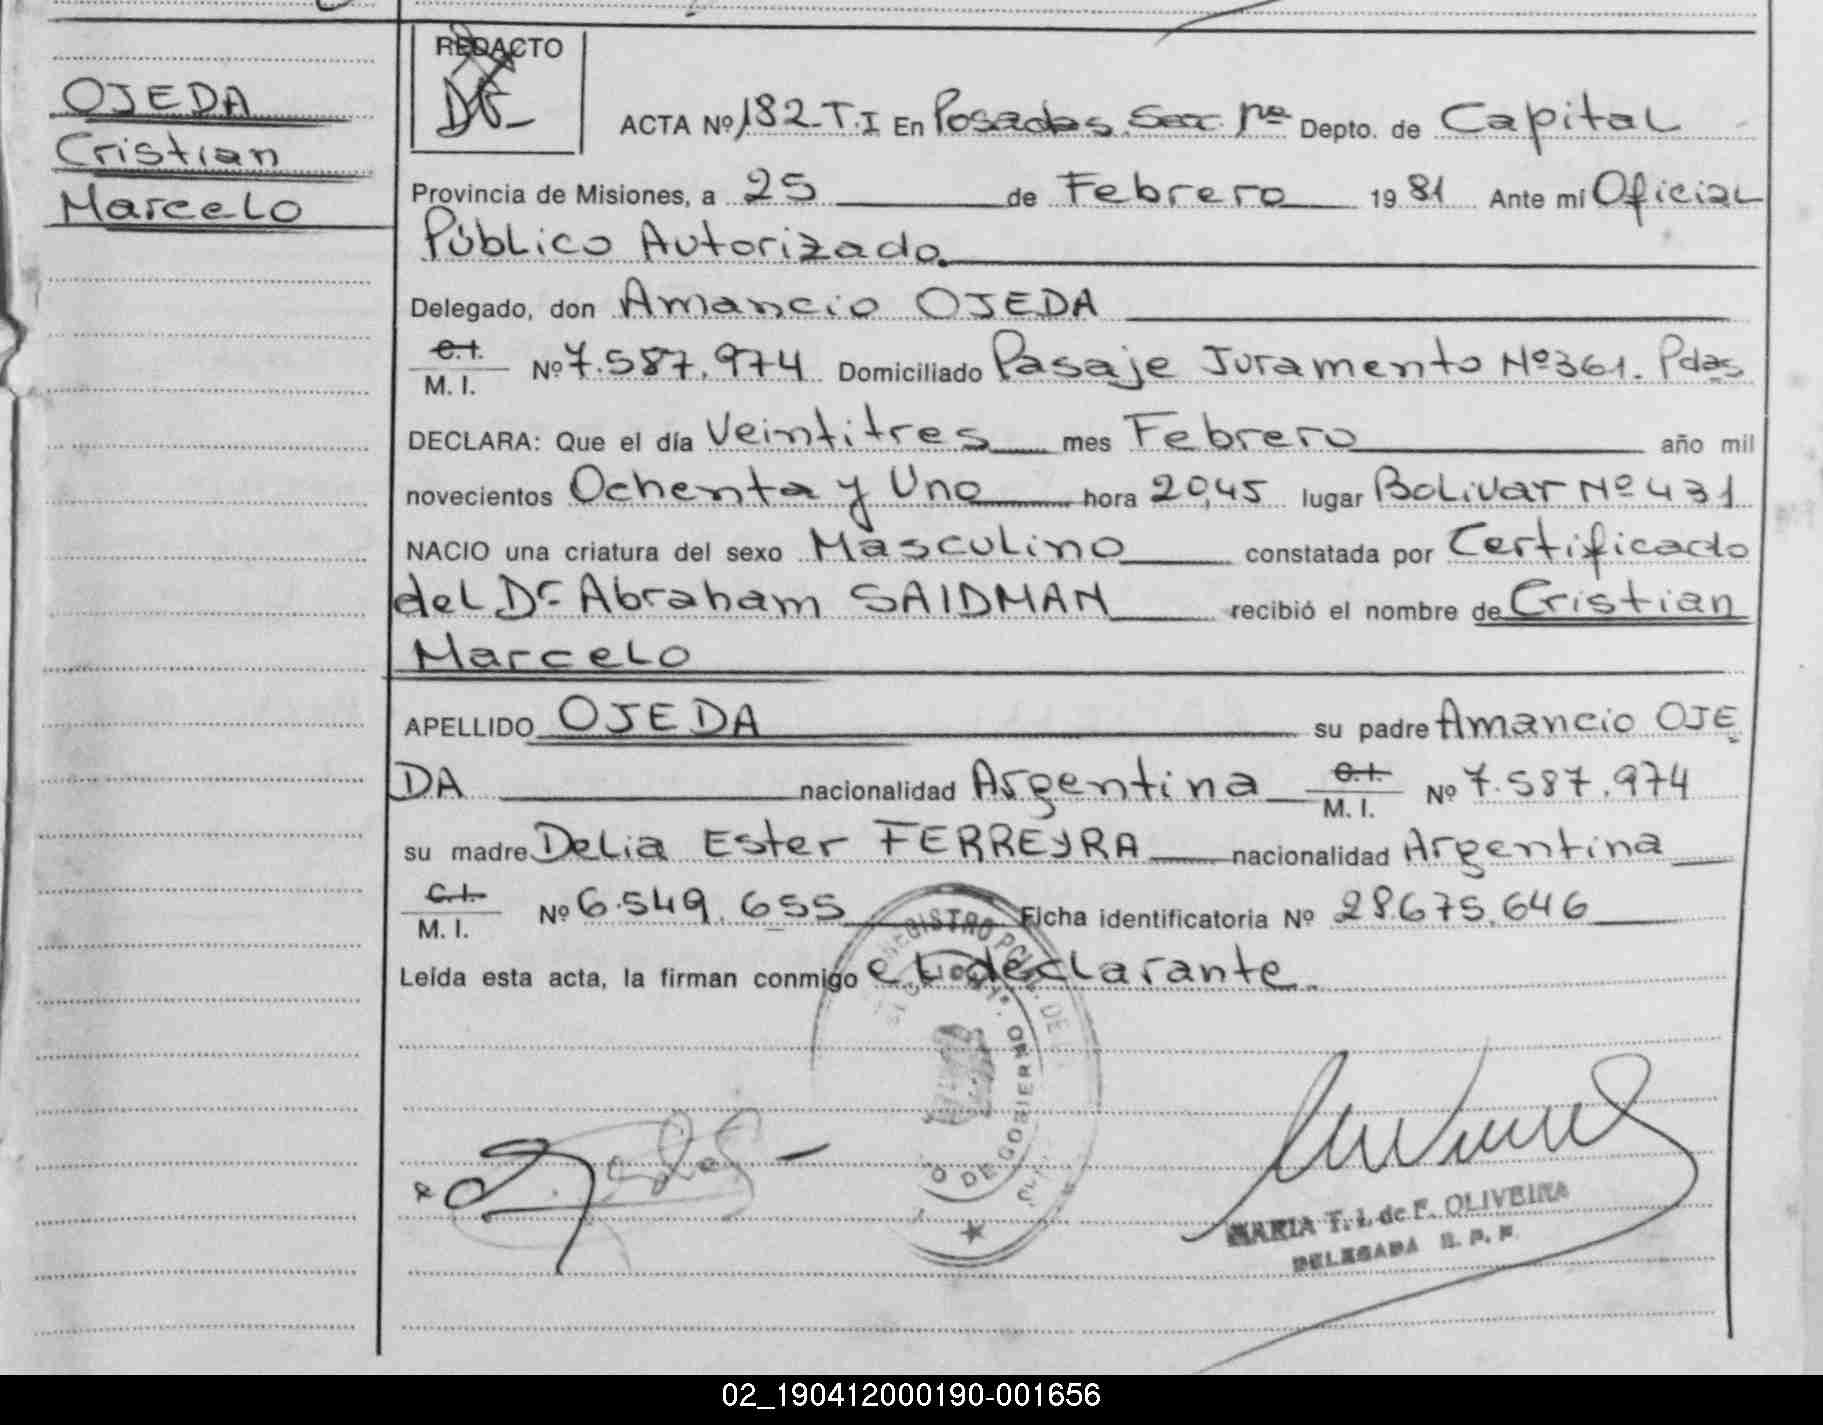 OJEDA
Cristian
Marcelo
REDACTO
ACTA Nº 182-T.I En Posadas Sec. 1ra Depto. de Capital
Provincia de Misiones, a 25 de Febrero 1981 Ante mí Oficial
Público Autorizado.
Delegado, don Amancio OJEDA
C.I. M. I. Nº 7.587.974 Domiciliado Pasaje Juramento Nº 361. Pdas
DECLARA: Que el día Veintitres mes Febrero año mil
novecientos Ochenta y Uno hora 20,45 lugar Bolivar Nº 431
NACIO una criatura del sexo Masculino constatada por Certificado
del Dr. Abraham SAIDMAN recibió el nombre de Cristian
Marcelo
APELLIDO OJEDA su padre Amancio OJE
DA nacionalidad Argentina C.I. M. I. Nº 7.587.974
su madre Delia Ester FERREYRA nacionalidad Argentina
C.I. M. I. Nº 6.549.655 Ficha identificatoria Nº 28.675.646
Leída esta acta, la firman conmigo el declarante.
REGISTRO
DE GOBIERNO
MARIA T. I. de F. OLIVEIRA
DELEGADA R. P. P.
02_190412000190-001656